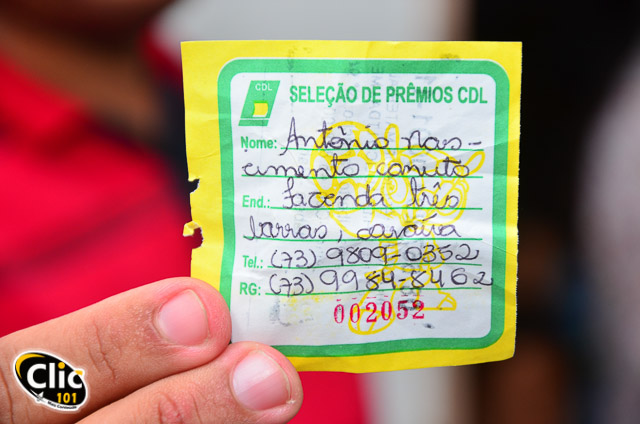 CDL
SELEÇÃO DE PRÊMIOS CDL
Nome: Antônio Nas-
cimento canuto
End.: Fazenda três
barras, caraíva
Tel.: (73) 9809-0352
RG: (73) 9984-8462
002052
Clic
101